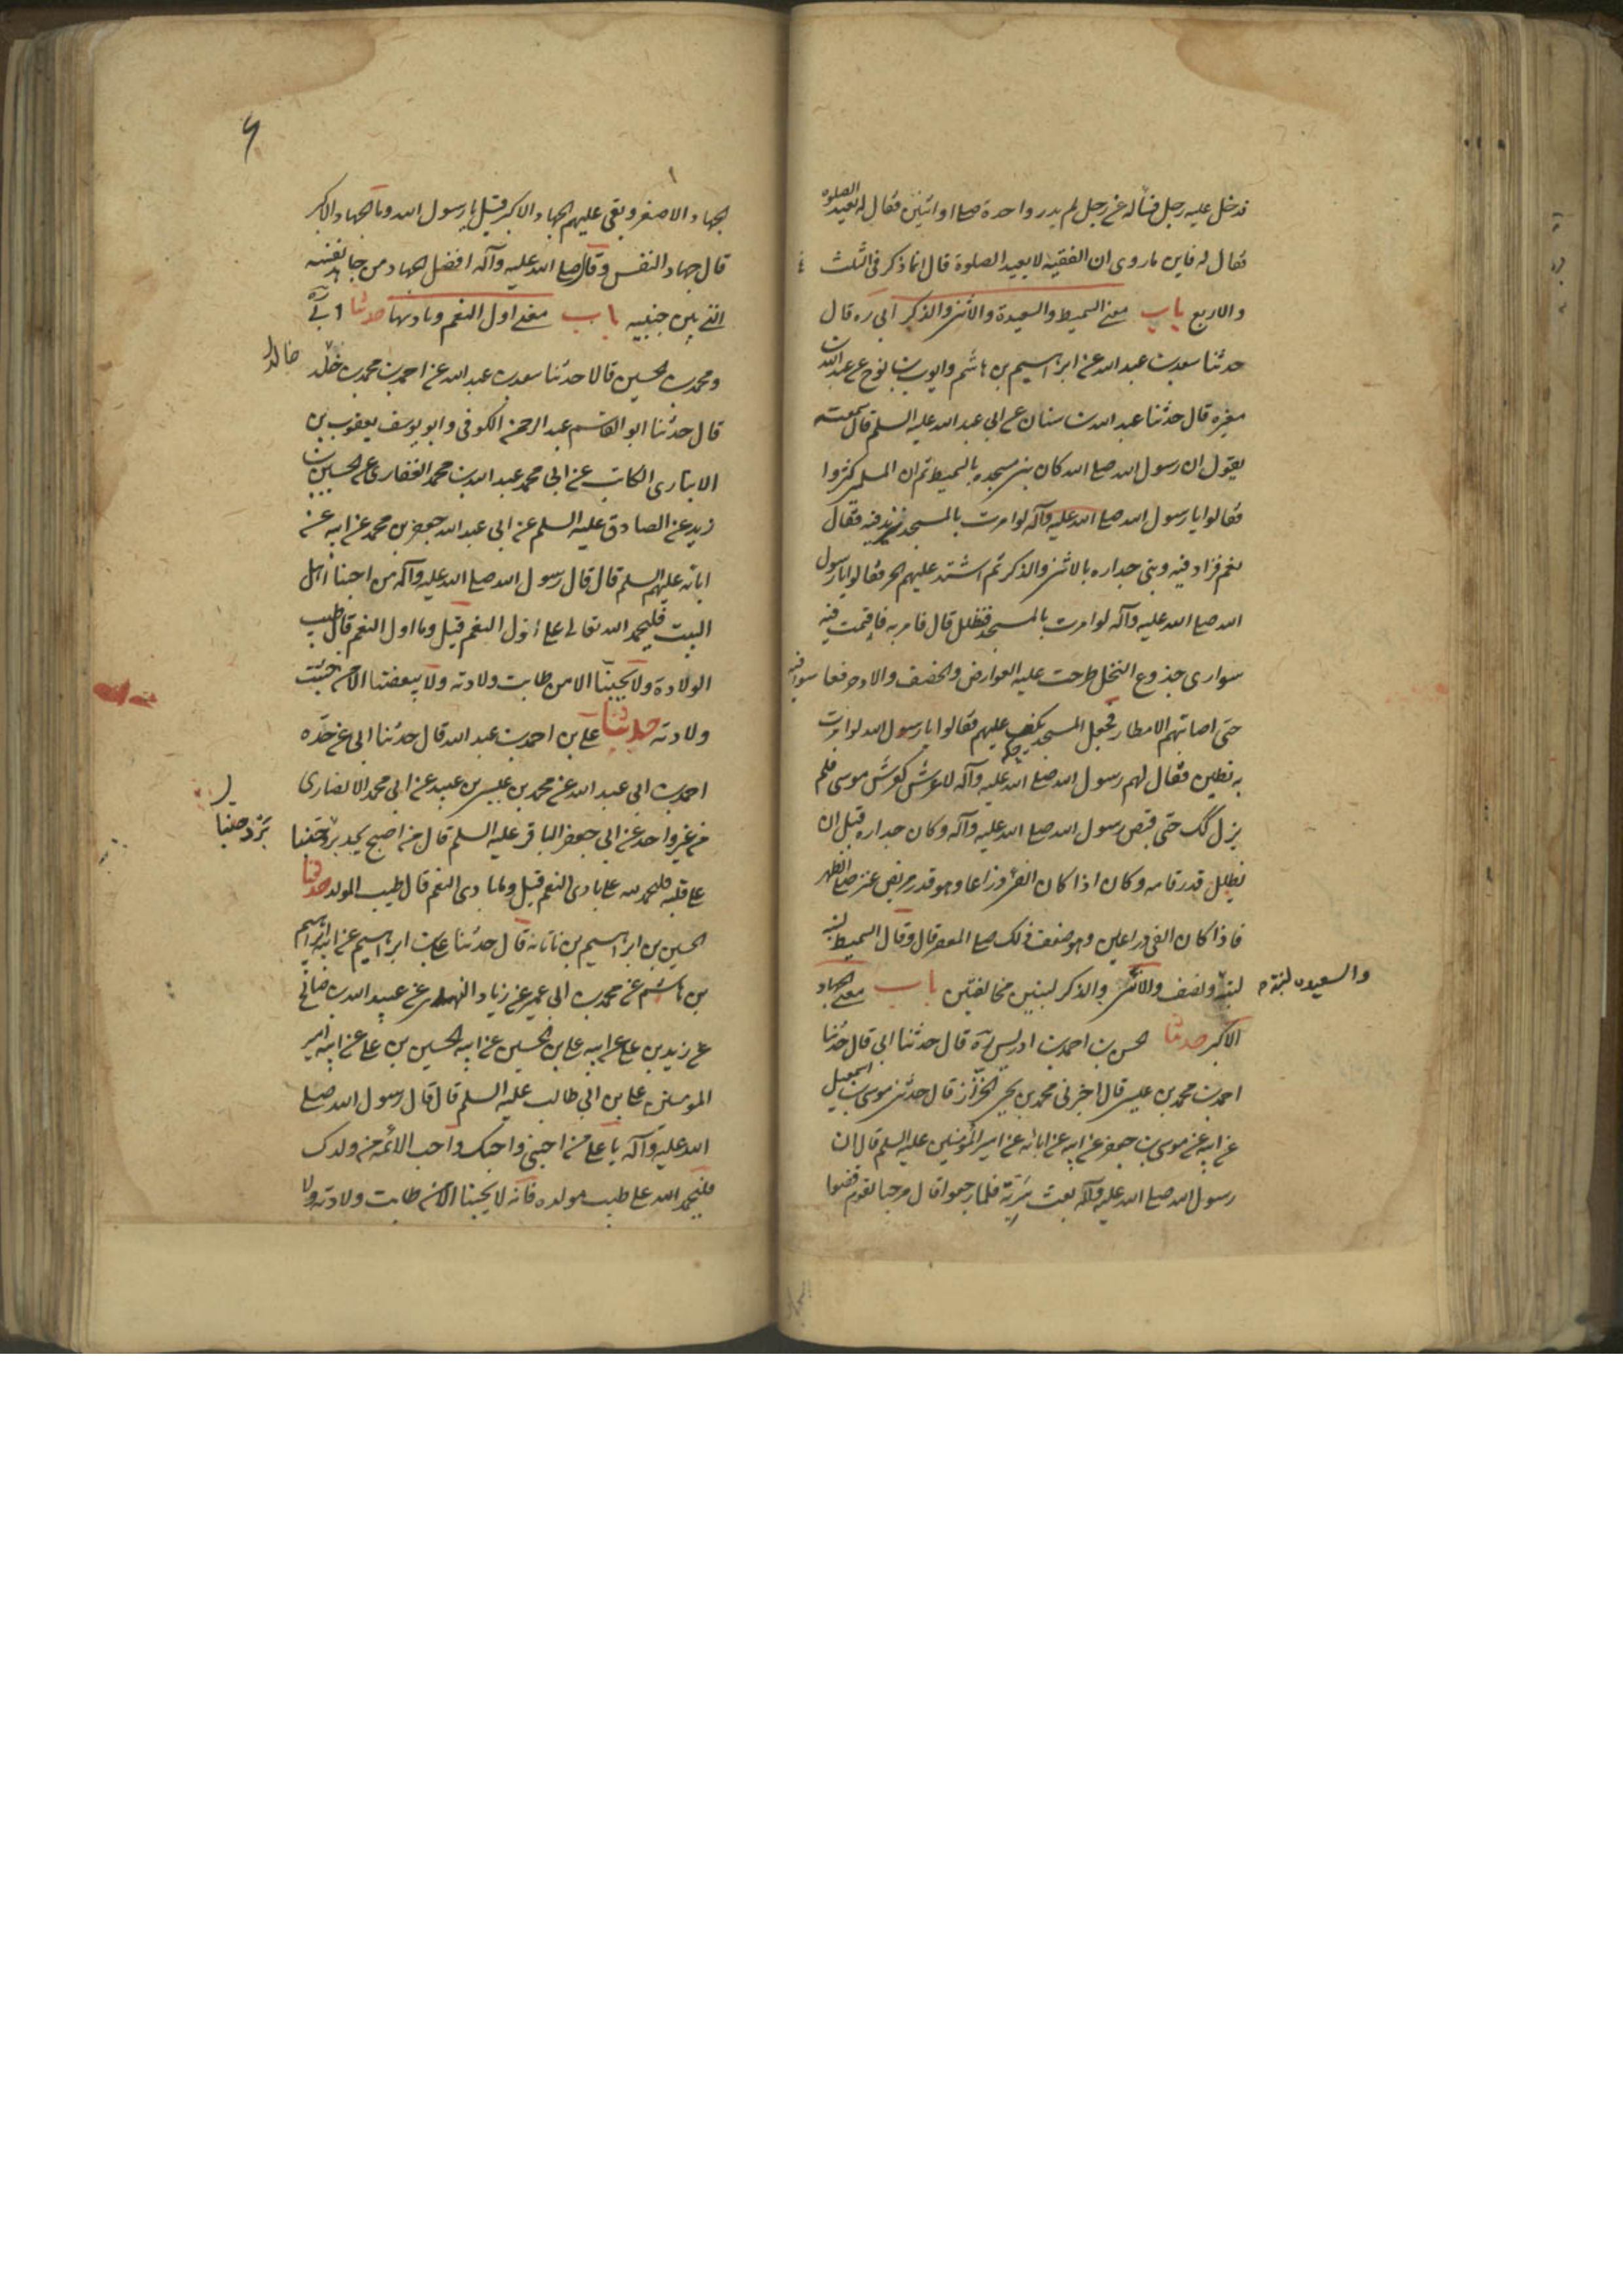 فدخل عليه رجل فسأله عن رجل لم يدر واحدة صلى او اثنين فقال له يعيد الصلوة
فقال له فاين ما روى ان الفقيه لا يعيد الصلوة قال انما ذكر فى الثلث
والاربع باب معنى السميط والسعيدة والانثى والذكر ابى ره قال
حدثنا سعد بن عبد الله عن ابراهيم بن هاشم وايوب بن نوح عن عبد الله بن
مغيره قال حدثنا عبد الله بن سنان عن ابى عبد الله عليه السلم قال سمعته
يقول ان رسول الله صلى الله كان بنى مسجده بالسميط ثم ان المسلمين كثروا
فقالوا يا رسول الله صلى الله عليه وآله لو امرت بالمسجد فزيد فيه فقال
نعم فزاد فيه وبنى جداره بالانثى والذكر ثم اشتد عليهم الحر فقالوا يا رسول
الله صلى الله عليه وآله لو امرت بالمسجد فظلل قال فامر به فاقيمت فيه
سوارى جذوع النخل طرحت عليه العوارض والخصف والاذخر فعاشوا فيه
حتى اصابتهم الامطار فجعل المسجد يكف عليهم فقالوا يا رسول الله لو امرت
به فطين فقال لهم رسول الله صلى الله عليه وآله لا عرش كعرش موسى فلم
يزل كك حتى قبض رسول الله صلى الله عليه وآله وكان جداره قبل ان
يظلل قدر قامه وكان اذا كان الفئ ذراعا وهو قدر مربض عنز صلى الظهر
فاذا كان الفئ ذراعين وهو ضعف ذلك صلى العصر قال وقال السميط لبنه
والسعيده لبنة و
لبنة ونصف والانثى والذكر لبنتين مخالفتين باب معنى الجهاد
الاكبر حدثنا الحسن بن احمد بن ادريس ره قال حدثنا ابى قال حدثنا
احمد بن محمد بن عيسى قال اخبرنى محمد بن يحيى الخزاز قال حدثنى موسى بن اسمعيل
عن ابيه عن موسى بن جعفر عن ابيه عن ابائه عن امير المؤمنين عليه السلم قال ان
رسول الله صلى الله عليه وآله بعث سرية فلما رجعوا قال مرحبا بقوم قضوا
الجهاد الاصغر وبقى عليهم الجهاد الاكبر قيل يا رسول الله وما الجهاد الاكبر
قال جهاد النفس وقال صلى الله عليه وآله افضل الجهاد من جاهد نفسه
التى بين جنبيه باب معنى اول النعم وباديها حدثنا ابى ره
ومحمد بن الحسين قالا حدثنا سعد بن عبد الله عن احمد بن محمد بن خلد
خالد
قال حدثنا ابو القاسم عبد الرحمن الكوفى وابو يوسف يعقوب بن
الانبارى الكاتب عن ابى محمد عبد الله بن محمد الغفارى عن الحسين بن
زيد عن الصادق عليه السلم عن ابى عبد الله جعفر بن محمد عن ابيه عن
ابائه عليهم السلم قال قال رسول الله صلى الله عليه وآله من احبنا اهل
البيت فليحمد الله تعالى على اول النعم قيل وما اول النعم قال طيب
الولادة ولا يحبنا الا من طابت ولادته ولا يبغضنا الا من خبثت
ولادته حدثنا على بن احمد بن عبد الله قال حدثنا ابى عن جده
احمد بن ابى عبد الله عن محمد بن عيسى بن عبيد عن ابى محمد الانصارى
عن غير واحد عن ابى جعفر الباقر عليه السلم قال من اصبح يجد برد حبنا
برد حبنا
على قلبه فليحمد لله على بادى النعم قيل وما بادى النعم قال طيب المولد حدثنا
الحسين بن ابراهيم بن ناتانه قال حدثنا على بن ابراهيم عن ابيه ابراهيم
بن هاشم عن محمد بن ابى عمير عن زياد النهدى عن عبيد الله بن صالح
عن زيد بن على عن ابيه على بن الحسين عن ابيه الحسين بن على عن ابيه امير
المومنين على بن ابى طالب عليه السلم قال قال رسول الله صلى
الله عليه وآله يا على من احبنى واحبك واحب الائمه من ولدك
فليحمد الله على طيب مولده فانه لا يحبنا الا من طابت ولادته ولا